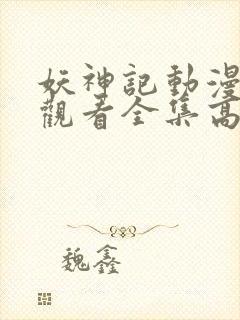 妖神記動漫
觀看全集高
魏鑫